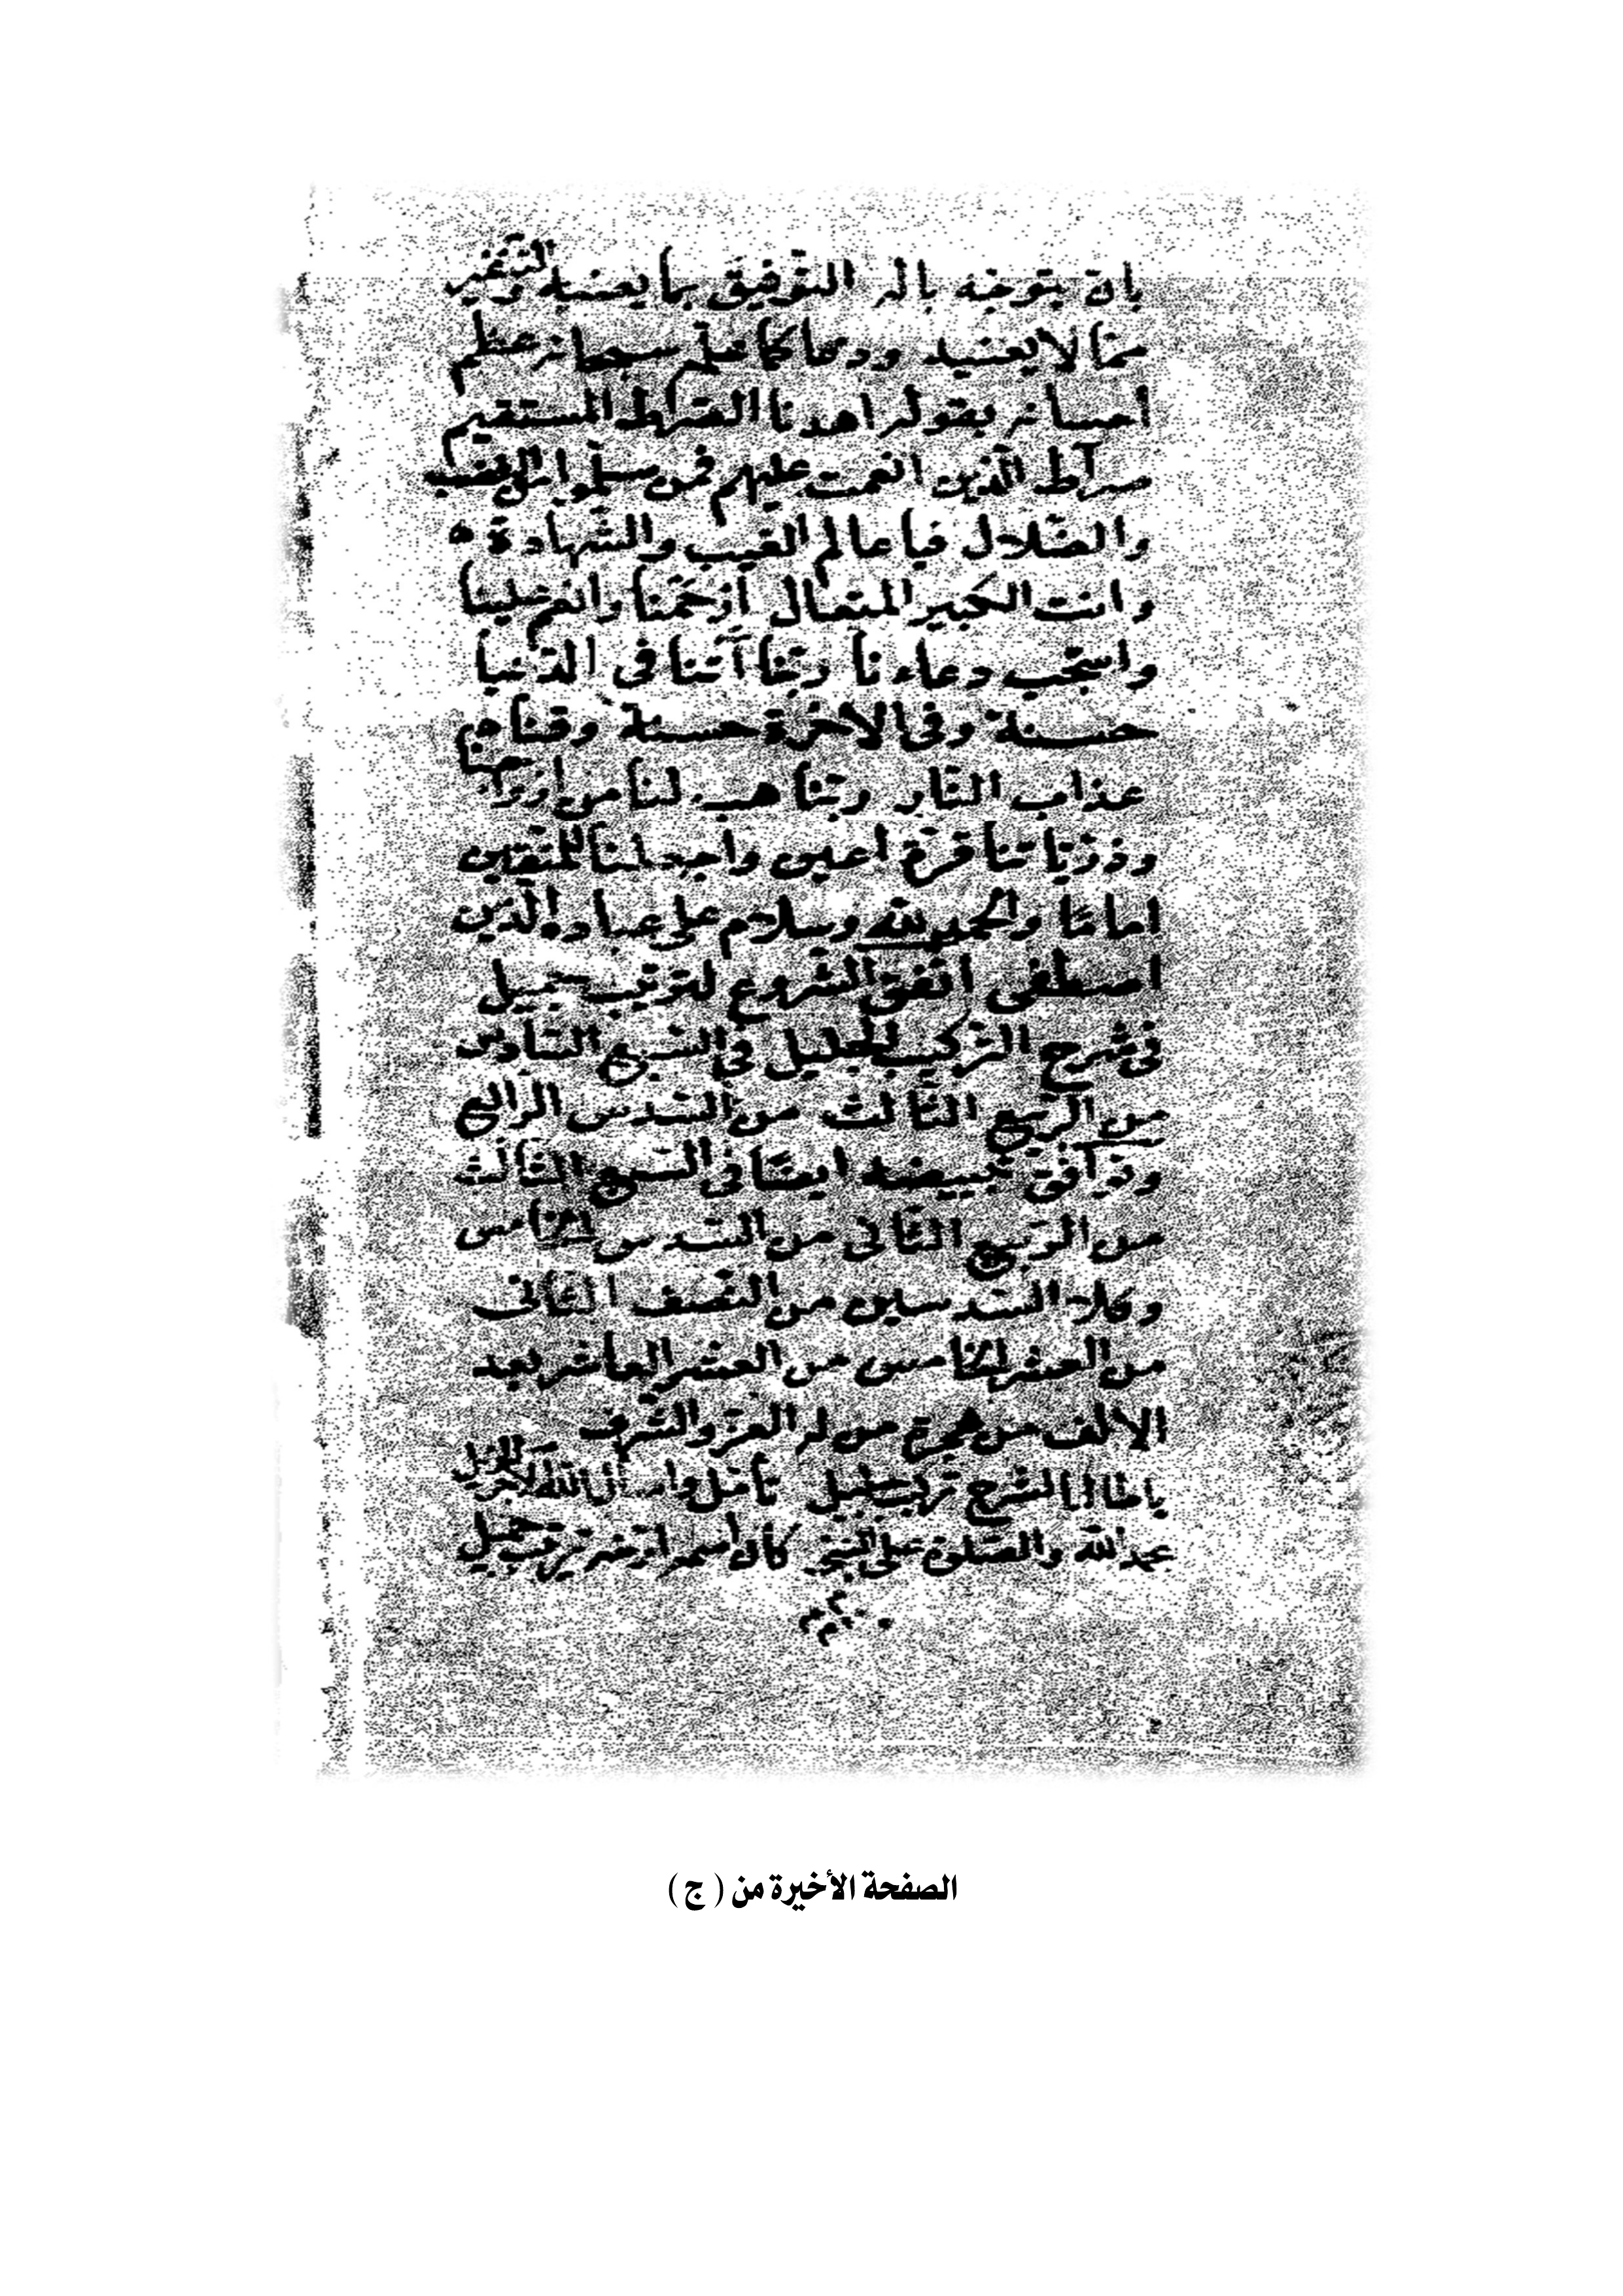 بان يتوجه باله التوفيق بما يعنيه
مما لا يعنيه ودعا كما علم سبحانه عظم
احسانه بقوله اهدنا الصراط المستقيم
صراط الذين انعمت عليهم فمن سلموا من الغضب
والضلال فيا عالم الغيب والشهادة
وانت الكبير المتعال ارحمنا وانعم علينا
واستجب دعاءنا ربنا آتنا فى الدنيا
حسنة وفى الاخرة حسنة وقنا
عذاب النار ربنا هب لنا من ازواجنا
وذرياتنا قرة اعين واجعلنا للمتقين
اماما والحمد لله وسلام على عباده الذين
اصطفى اتفق الشروع لترتيب جميل
فى شرح التركيب الجليل فى السبع السادس
من الربيع الثالث من السدس الرابع
وتوافق تبييضه ايضا فى السبع الثالث
من الربيع الثانى من السدس الخامس
وكلا السدسين من النصف الثانى
من العشر الخامس من العشر العاشر بعد
الالف من هجرة من له العز والشرف
يا طالب الشرح تركيب جليل تأمل واسأل الله
بحمد لله والصلوة على النبى كان اسمه ترتيب جميل
الصفحة الأخيرة من ( ج )